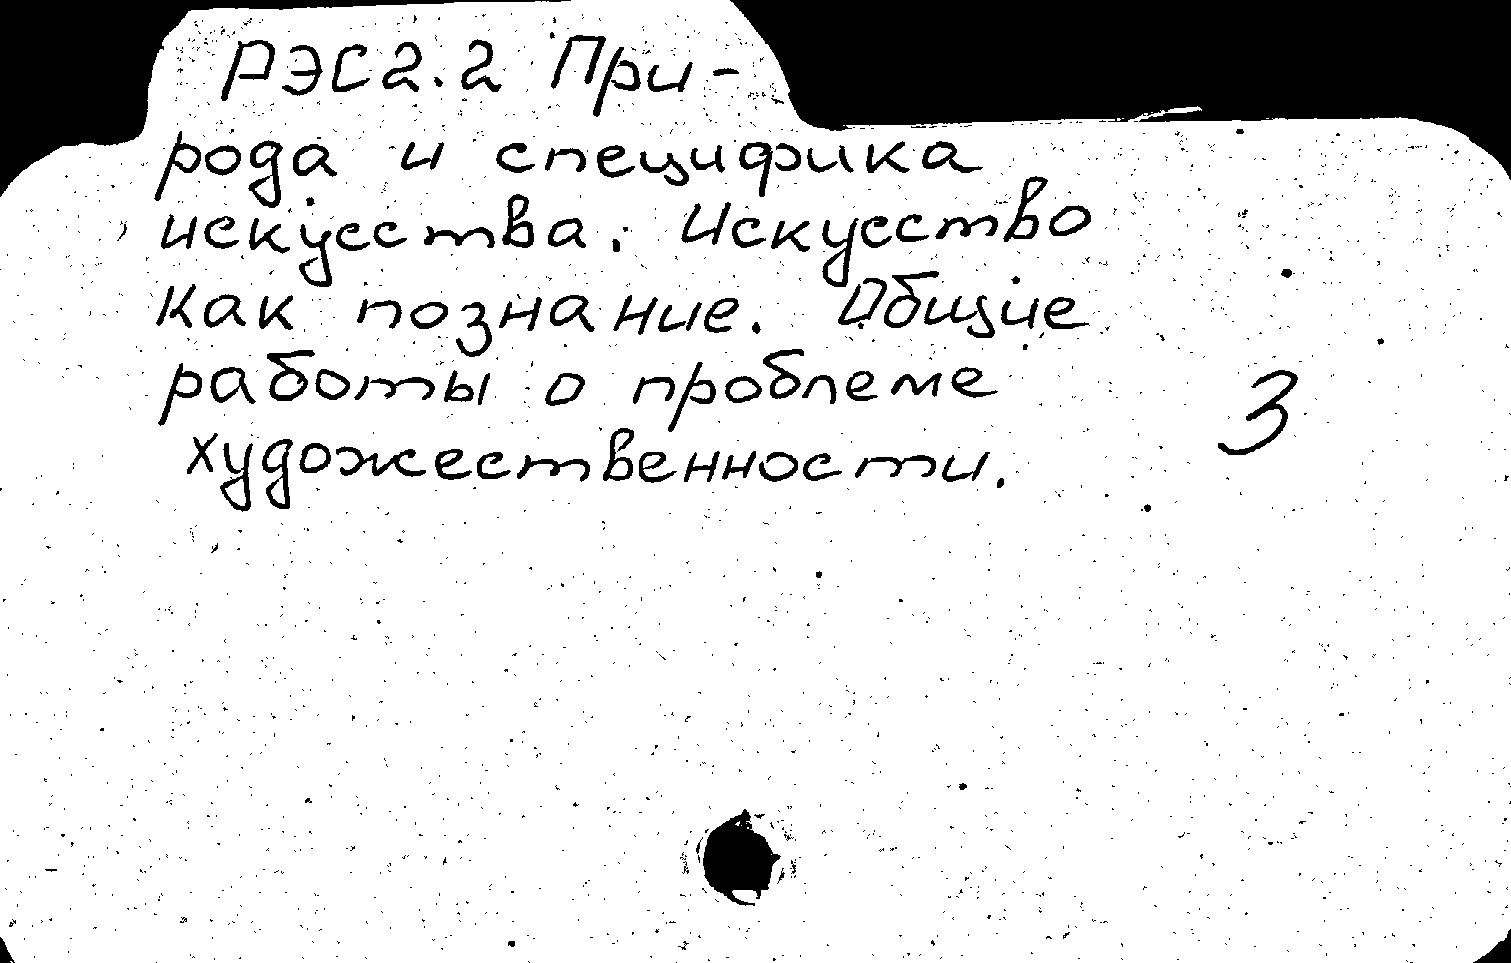 РЭС2.2 При-
рода и специфика
искусства. Искусство
как познание. Общие
работы о проблеме
художественности.
3